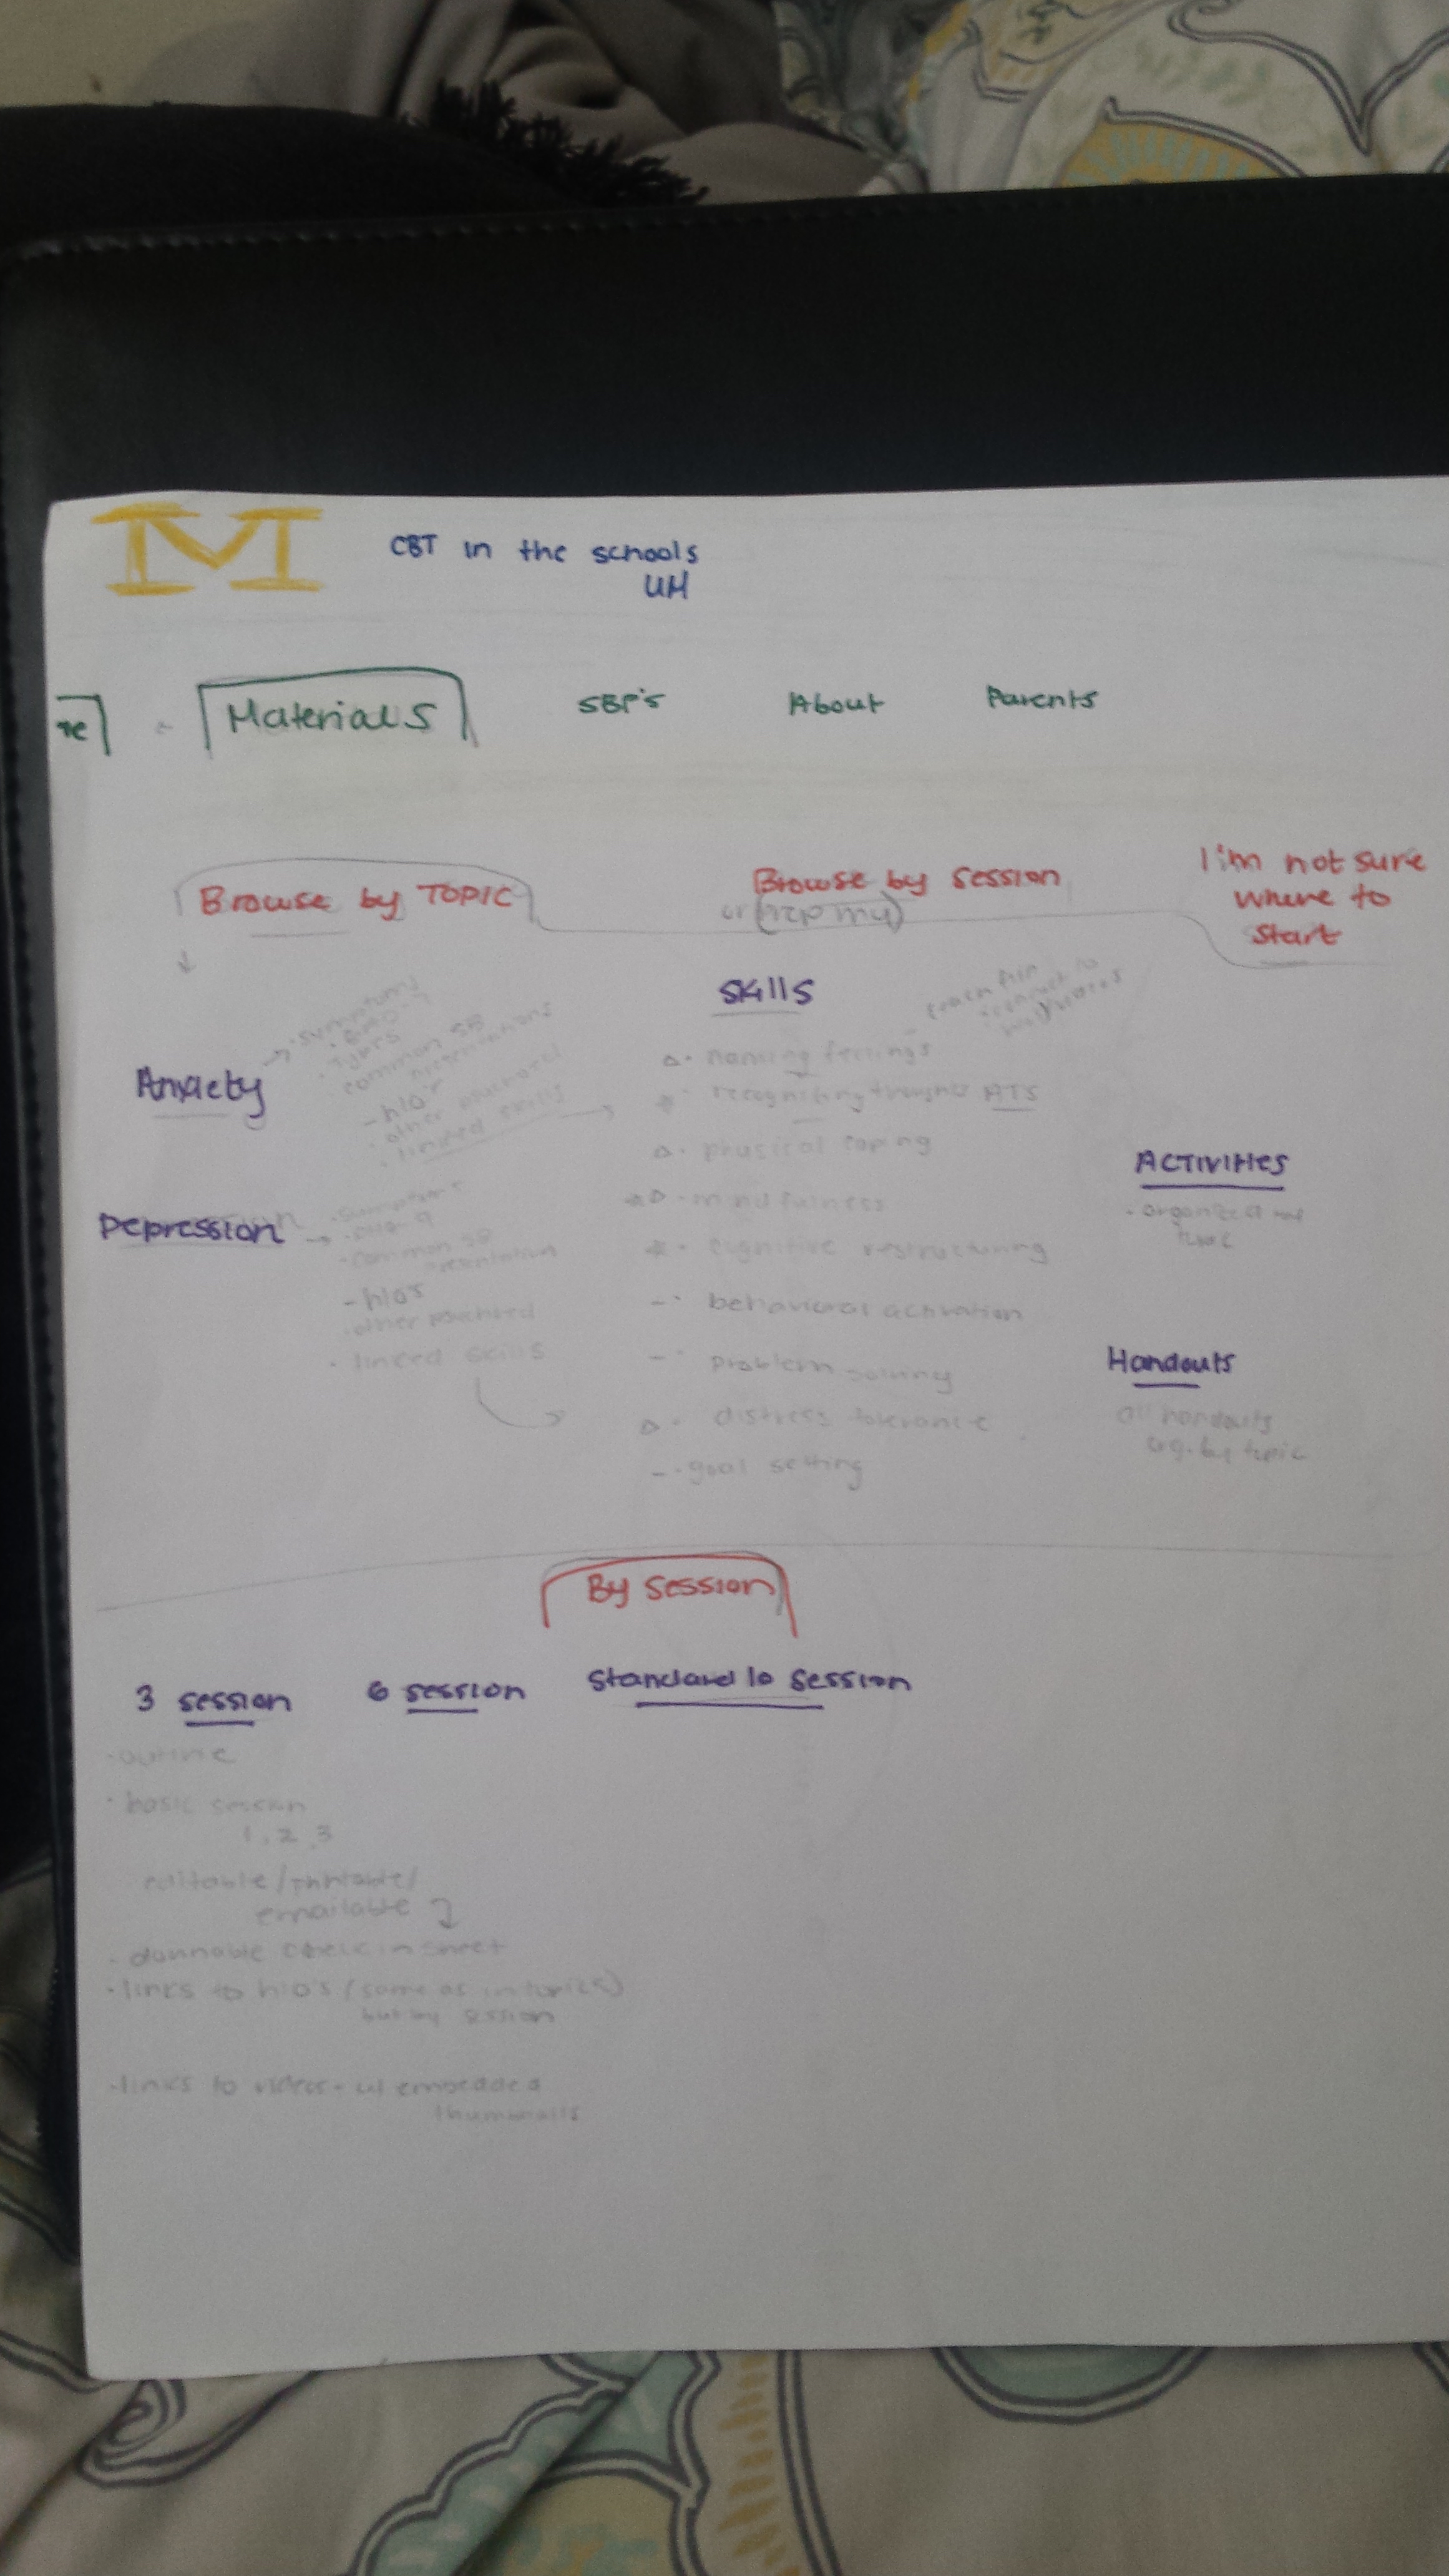 M
CBT in the schools
UM
Materials SBP's About Parents
Browse by TOPIC
Browse by Session
or
I'm not sure
where to
start
Skills
Anxiety
→ · symptoms
· types
common SB
presentations
- h/o's
· other
· linked skills →
Depression →
· common SB
presentation
- h/o's
· other
· linked skills
△· naming feelings
ATS
△· physical coping
*△ - mindfulness
*· cognitive restructuring
-· behavioral activation
-· problem solving
△· distress tolerance
-· goal setting
Activities
Handouts
all handouts
org. by topic
By session
3 session 6 session Standard 10 session
· outline
· basic session
1, 2, 3
editable/printable/
emailable
check in sheet
· links to h/o's (same as in topics)
but by session
· links to videos - w/ embedded
thumbnails